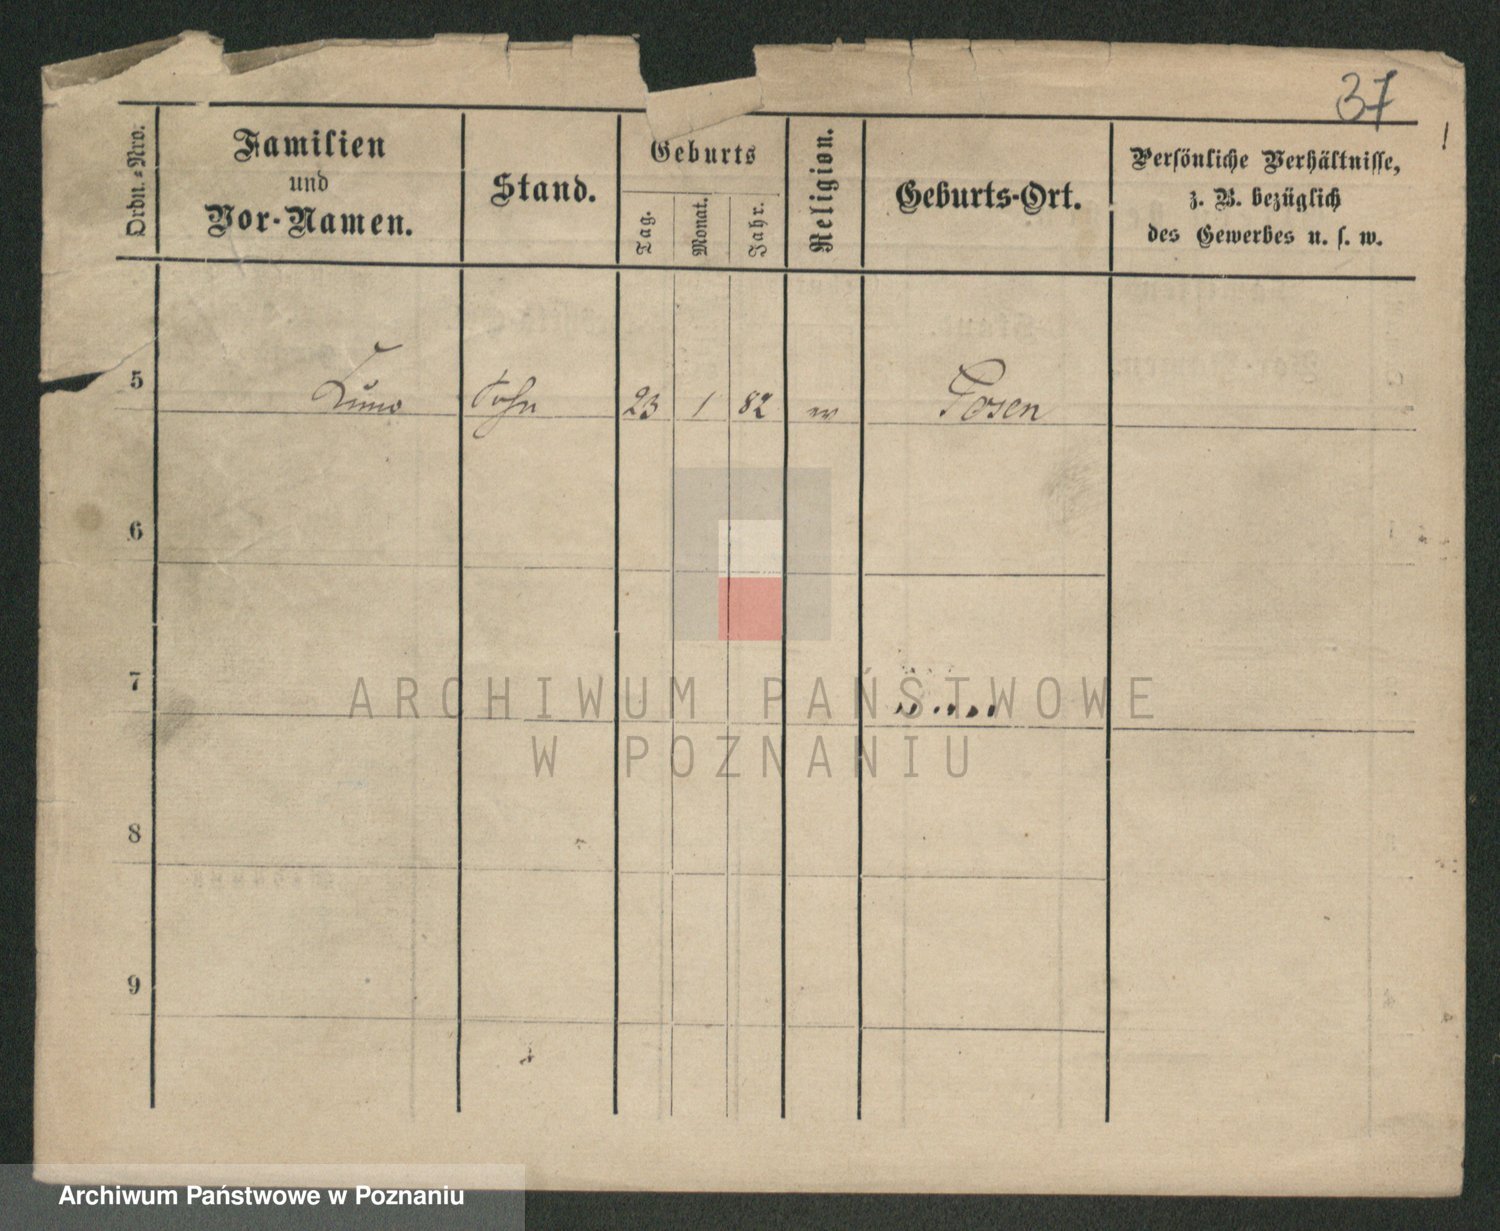 37
Ordn.-Nro.
Familien
und
Vor-Namen.
Stand.
Geburts
Tag.
Monat.
Jahr.
Religion.
Geburts-Ort.
Persönliche Verhältnisse,
z. B. bezüglich
des Gewerbes u. s. w.
5 Kuno Sohn 23 1 82 Posen
6
7
8
9
ARCHIWUM PAŃSTWOWE
W POZNANIU
Archiwum Państwowe w Poznaniu